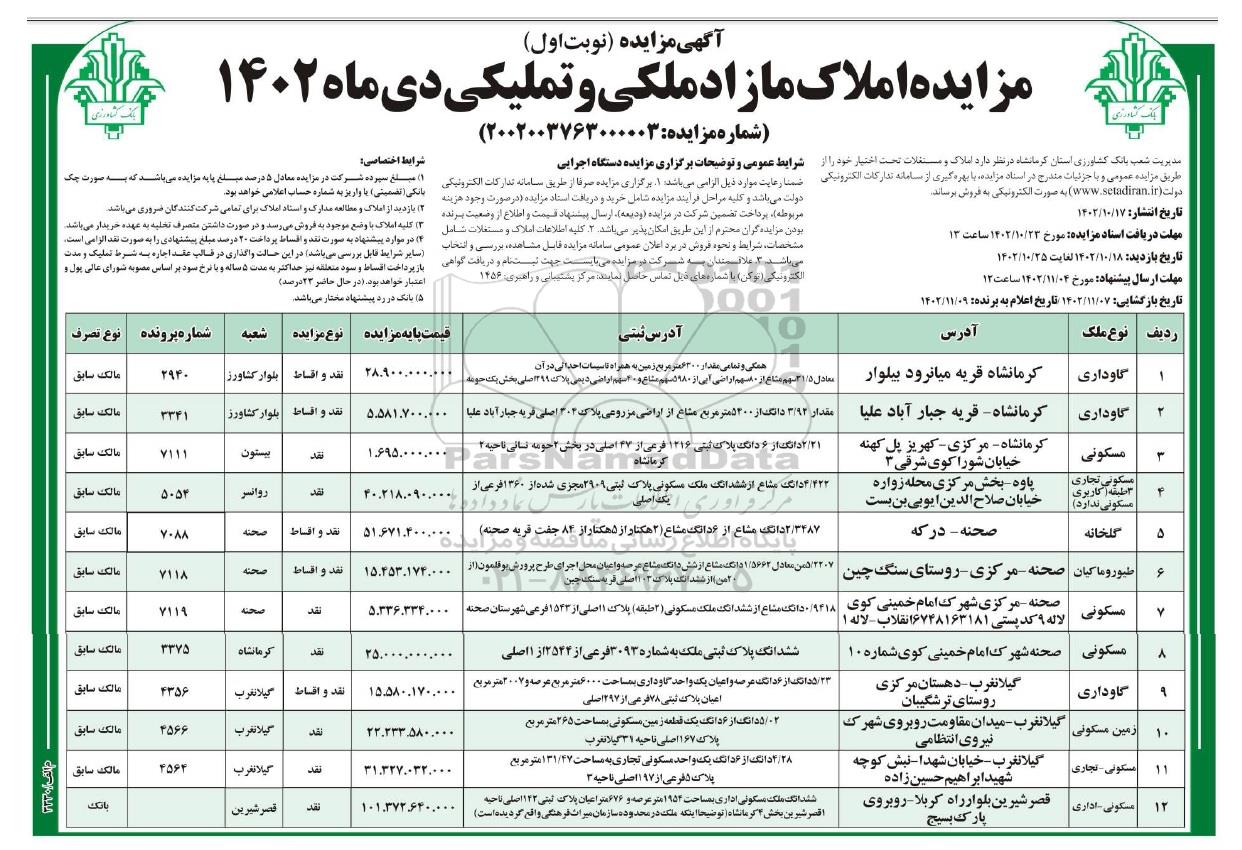 آگهی مزایده (نوبت اول)
مزایده املاک مازاد ملکی و تملیکی دی ماه ۱۴۰۲
(شماره مزایده: ۲۰۰۲۰۰۳۷۶۳۰۰۰۰۰۳)
بانک کشاورزی
بانک کشاورزی
مدیریت شعب بانک کشاورزی استان کرمانشاه درنظر دارد املاک و مستغلات تحت اختیار خود را از
طریق مزایده عمومی و با جزئیات مندرج در اسناد مزایده، با بهره‌گیری از سامانه تدارکات الکترونیکی
دولت (www.setadiran.ir) به صورت الکترونیکی به فروش برساند.
تاریخ انتشار: ۱۴۰۲/۱۰/۱۷
مهلت دریافت اسناد مزایده: مورخ ۱۴۰۲/۱۰/۲۳ ساعت ۱۳
تاریخ بازدید: ۱۴۰۲/۱۰/۱۸ لغایت ۱۴۰۲/۱۰/۲۵
مهلت ارسال پیشنهاد: مورخ ۱۴۰۲/۱۱/۰۴ ساعت ۱۲
تاریخ بازگشایی: ۱۴۰۲/۱۱/۰۷ تاریخ اعلام به برنده: ۱۴۰۲/۱۱/۰۹
شرایط عمومی و توضیحات برگزاری مزایده دستگاه اجرایی
ضمنا رعایت موارد ذیل الزامی می‌باشد: ۱. برگزاری مزایده صرفا از طریق سامانه تدارکات الکترونیکی
دولت می‌باشد و کلیه مراحل فرآیند مزایده شامل خرید و دریافت اسناد مزایده (درصورت وجود هزینه
مربوطه)، پرداخت تضمین شرکت در مزایده (ودیعه)، ارسال پیشنهاد قیمت و اطلاع از وضعیت برنده
بودن مزایده گران محترم از این طریق امکان‌پذیر می‌باشد. ۲. کلیه اطلاعات املاک و مستغلات شامل
مشخصات، شرایط و نحوه فروش در برد اعلان عمومی سامانه مزایده قابل مشاهده، بررسی و انتخاب
می‌باشد. ۳. علاقمندان به شرکت در مزایده می‌بایست جهت ثبت‌نام و دریافت گواهی
الکترونیکی (توکن) با شماره‌های ذیل تماس حاصل نمایند: مرکز پشتیبانی و راهبری: ۱۴۵۶
شرایط اختصاصی:
۱) مبلغ سپرده شرکت در مزایده معادل ۵ درصد مبلغ پایه مزایده می‌باشد که به صورت چک
بانکی (تضمینی) یا واریز به شماره حساب اعلامی خواهد بود.
۲) بازدید از املاک و مطالعه مدارک و اسناد املاک برای تمامی شرکت‌کنندگان ضروری می‌باشد.
۳) کلیه املاک با وضع موجود به فروش می‌رسد و در صورت داشتن متصرف تخلیه به عهده خریدار می‌باشد.
۴) در موارد پیشنهاد به صورت نقد و اقساط پرداخت ۲۰ درصد مبلغ پیشنهادی را به صورت نقد الزامی است.
(سایر شرایط قابل بررسی می‌باشد) در این حالت واگذاری در قالب عقد اجاره به شرط تملیک و مدت
بازپرداخت اقساط و سود متعلقه نیز حداکثر به مدت ۵ ساله و با نرخ سود بر اساس مصوبه شورای عالی پول و
اعتبار خواهد بود. (در حال حاضر ۲۳ درصد)
۵) بانک در رد پیشنهاد مختار می‌باشد.
ردیف نوع ملک آدرس آدرس ثبتی قیمت پایه مزایده نوع مزایده شعبه شماره پرونده نوع تصرف
۱ گاوداری کرمانشاه قریه میانرود بیلوار همگی و تمامی مقدار ۶۳۰۰ مترمربع زمین به همراه تاسیسات احداثی در آن
معادل ۳۱/۵ سهم مشاع از ۸۰ سهم اراضی آبی از ۵۹۸۰ سهم مشاع و ۴۰ سهم اراضی دیمی پلاک ۲۹۹ اصلی بخش یک حومه ۲۸.۹۰۰.۰۰۰.۰۰۰ نقد و اقساط بلوار کشاورز ۲۹۴۰ مالک سابق
۲ گاوداری کرمانشاه- قریه جبار آباد علیا مقدار ۳/۹۲ دانگ از ۵۴۰۰ مترمربع مشاع از اراضی مزروعی پلاک ۳۰۴ اصلی قریه جبارآباد علیا ۵.۵۸۱.۷۰۰.۰۰۰ نقد و اقساط بلوار کشاورز ۳۳۴۱ مالک سابق
۳ مسکونی کرمانشاه- مرکزی-کهریز پل کهنه
خیابان شورا کوی شرقی ۳ ۲/۲۱ دانگ از ۶ دانگ پلاک ثبتی ۱۲۱۶ فرعی از ۴۷ اصلی در بخش ۲ حومه نسائی ناحیه ۲
کرمانشاه ۱.۶۹۵.۰۰۰.۰۰۰ نقد بیستون ۷۱۱۱ مالک سابق
۴ مسکونی تجاری
۳ طبقه (کاربری
مسکونی ندارد) پاوه-بخش مرکزی محله زواره
خیابان صلاح الدین ایوبی بن بست ۴/۴۲۲ دانگ مشاع از ششدانگ ملک مسکونی پلاک ثبتی ۲۹۰۹ مجزی شده از ۱۳۶۰ فرعی از
یک اصلی ۴۰.۲۱۸.۰۹۰.۰۰۰ نقد روانسر ۵۰۵۴ مالک سابق
۵ گلخانه صحنه- درکه ۲/۳۴۸۷ دانگ مشاع از ۶ دانگ مشاع (۲ هکتار از ۵ هکتار از ۸۴ جفت قریه صحنه) ۵۱.۶۷۱.۴۰۰.۰۰۰ نقد و اقساط صحنه ۷۰۸۸ مالک سابق
۶ طیور و ماکیان صحنه-مرکزی-روستای سنگ چین ۵/۲۲۰۷ من معادل ۱/۵۶۶۲ دانگ مشاع از شش دانگ مشاع عرصه و اعیان محل اجرای طرح پرورش بوقلمون (از
۲۰ من) از ششدانگ پلاک ۱۰۳ اصلی قریه سنگ چین ۱۵.۴۵۳.۱۷۴.۰۰۰ نقد و اقساط صحنه ۷۱۱۸ مالک سابق
۷ مسکونی صحنه-مرکزی شهرک امام خمینی کوی
لاله ۹ کدپستی ۶۷۴۸۱۶۳۱۸۱ انقلاب-لاله ۱ ۰/۹۴۱۸ دانگ مشاع از ششدانگ ملک مسکونی (۲ طبقه) پلاک ۱۱ اصلی از ۱۵۴۳ فرعی شهرستان صحنه ۵.۳۳۶.۳۳۴.۰۰۰ نقد صحنه ۷۱۱۹ مالک سابق
۸ مسکونی صحنه شهرک امام خمینی کوی شماره ۱۰ ششدانگ پلاک ثبتی ملک به شماره ۳۰۹۳ فرعی از ۲۵۴۴ از ۱ اصلی ۲۵.۰۰۰.۰۰۰.۰۰۰ نقد کرمانشاه ۳۳۷۵ مالک سابق
۹ گاوداری گیلانغرب-دهستان مرکزی
روستای ترشگیبان ۵/۲۳ دانگ از ۶ دانگ عرصه و اعیان یک واحد گاوداری بمساحت ۶۰۰۰ مترمربع عرصه و ۲۰۰۷ مترمربع
اعیان پلاک ثبتی ۷۸ فرعی از ۲۹۷ اصلی ۱۵.۵۸۰.۱۷۰.۰۰۰ نقد و اقساط گیلانغرب ۴۳۵۶ مالک سابق
۱۰ زمین مسکونی گیلانغرب-میدان مقاومت روبروی شهرک
نیروی انتظامی ۵/۰۲ دانگ از ۶ دانگ یک قطعه زمین مسکونی بمساحت ۲۶۵ مترمربع
پلاک ۱۶۷ اصلی ناحیه ۳۱ گیلانغرب ۲۲.۲۳۳.۵۸۰.۰۰۰ نقد گیلانغرب ۴۵۶۶ مالک سابق
۱۱ مسکونی-تجاری گیلانغرب-خیابان شهدا-نبش کوچه
شهید ابراهیم حسین زاده ۴/۲۸ دانگ از ۶ دانگ یک واحد مسکونی تجاری به مساحت ۱۳۱/۴۷ مترمربع
پلاک ۵ فرعی از ۱۹۷ اصلی ناحیه ۳ ۳۱.۳۲۷.۰۳۲.۰۰۰ نقد گیلانغرب ۴۵۶۴ مالک سابق
۱۲ مسکونی-اداری قصرشیرین بلوار راه کربلا-روبروی
پارک بسیج ششدانگ ملک مسکونی اداری بمساحت ۱۹۵۴ متر عرصه و ۶۷۶ متر اعیان پلاک ثبتی ۱۴۲ اصلی ناحیه
۱ قصرشیرین بخش ۴ کرمانشاه (توضیحا اینکه ملک در محدوده سازمان میراث فرهنگی واقع گردیده است) ۱۰۱.۳۷۲.۶۴۰.۰۰۰ نقد قصرشیرین بانک
ParsNamadData
پایگاه اطلاع رسانی مناقصه و مزایده